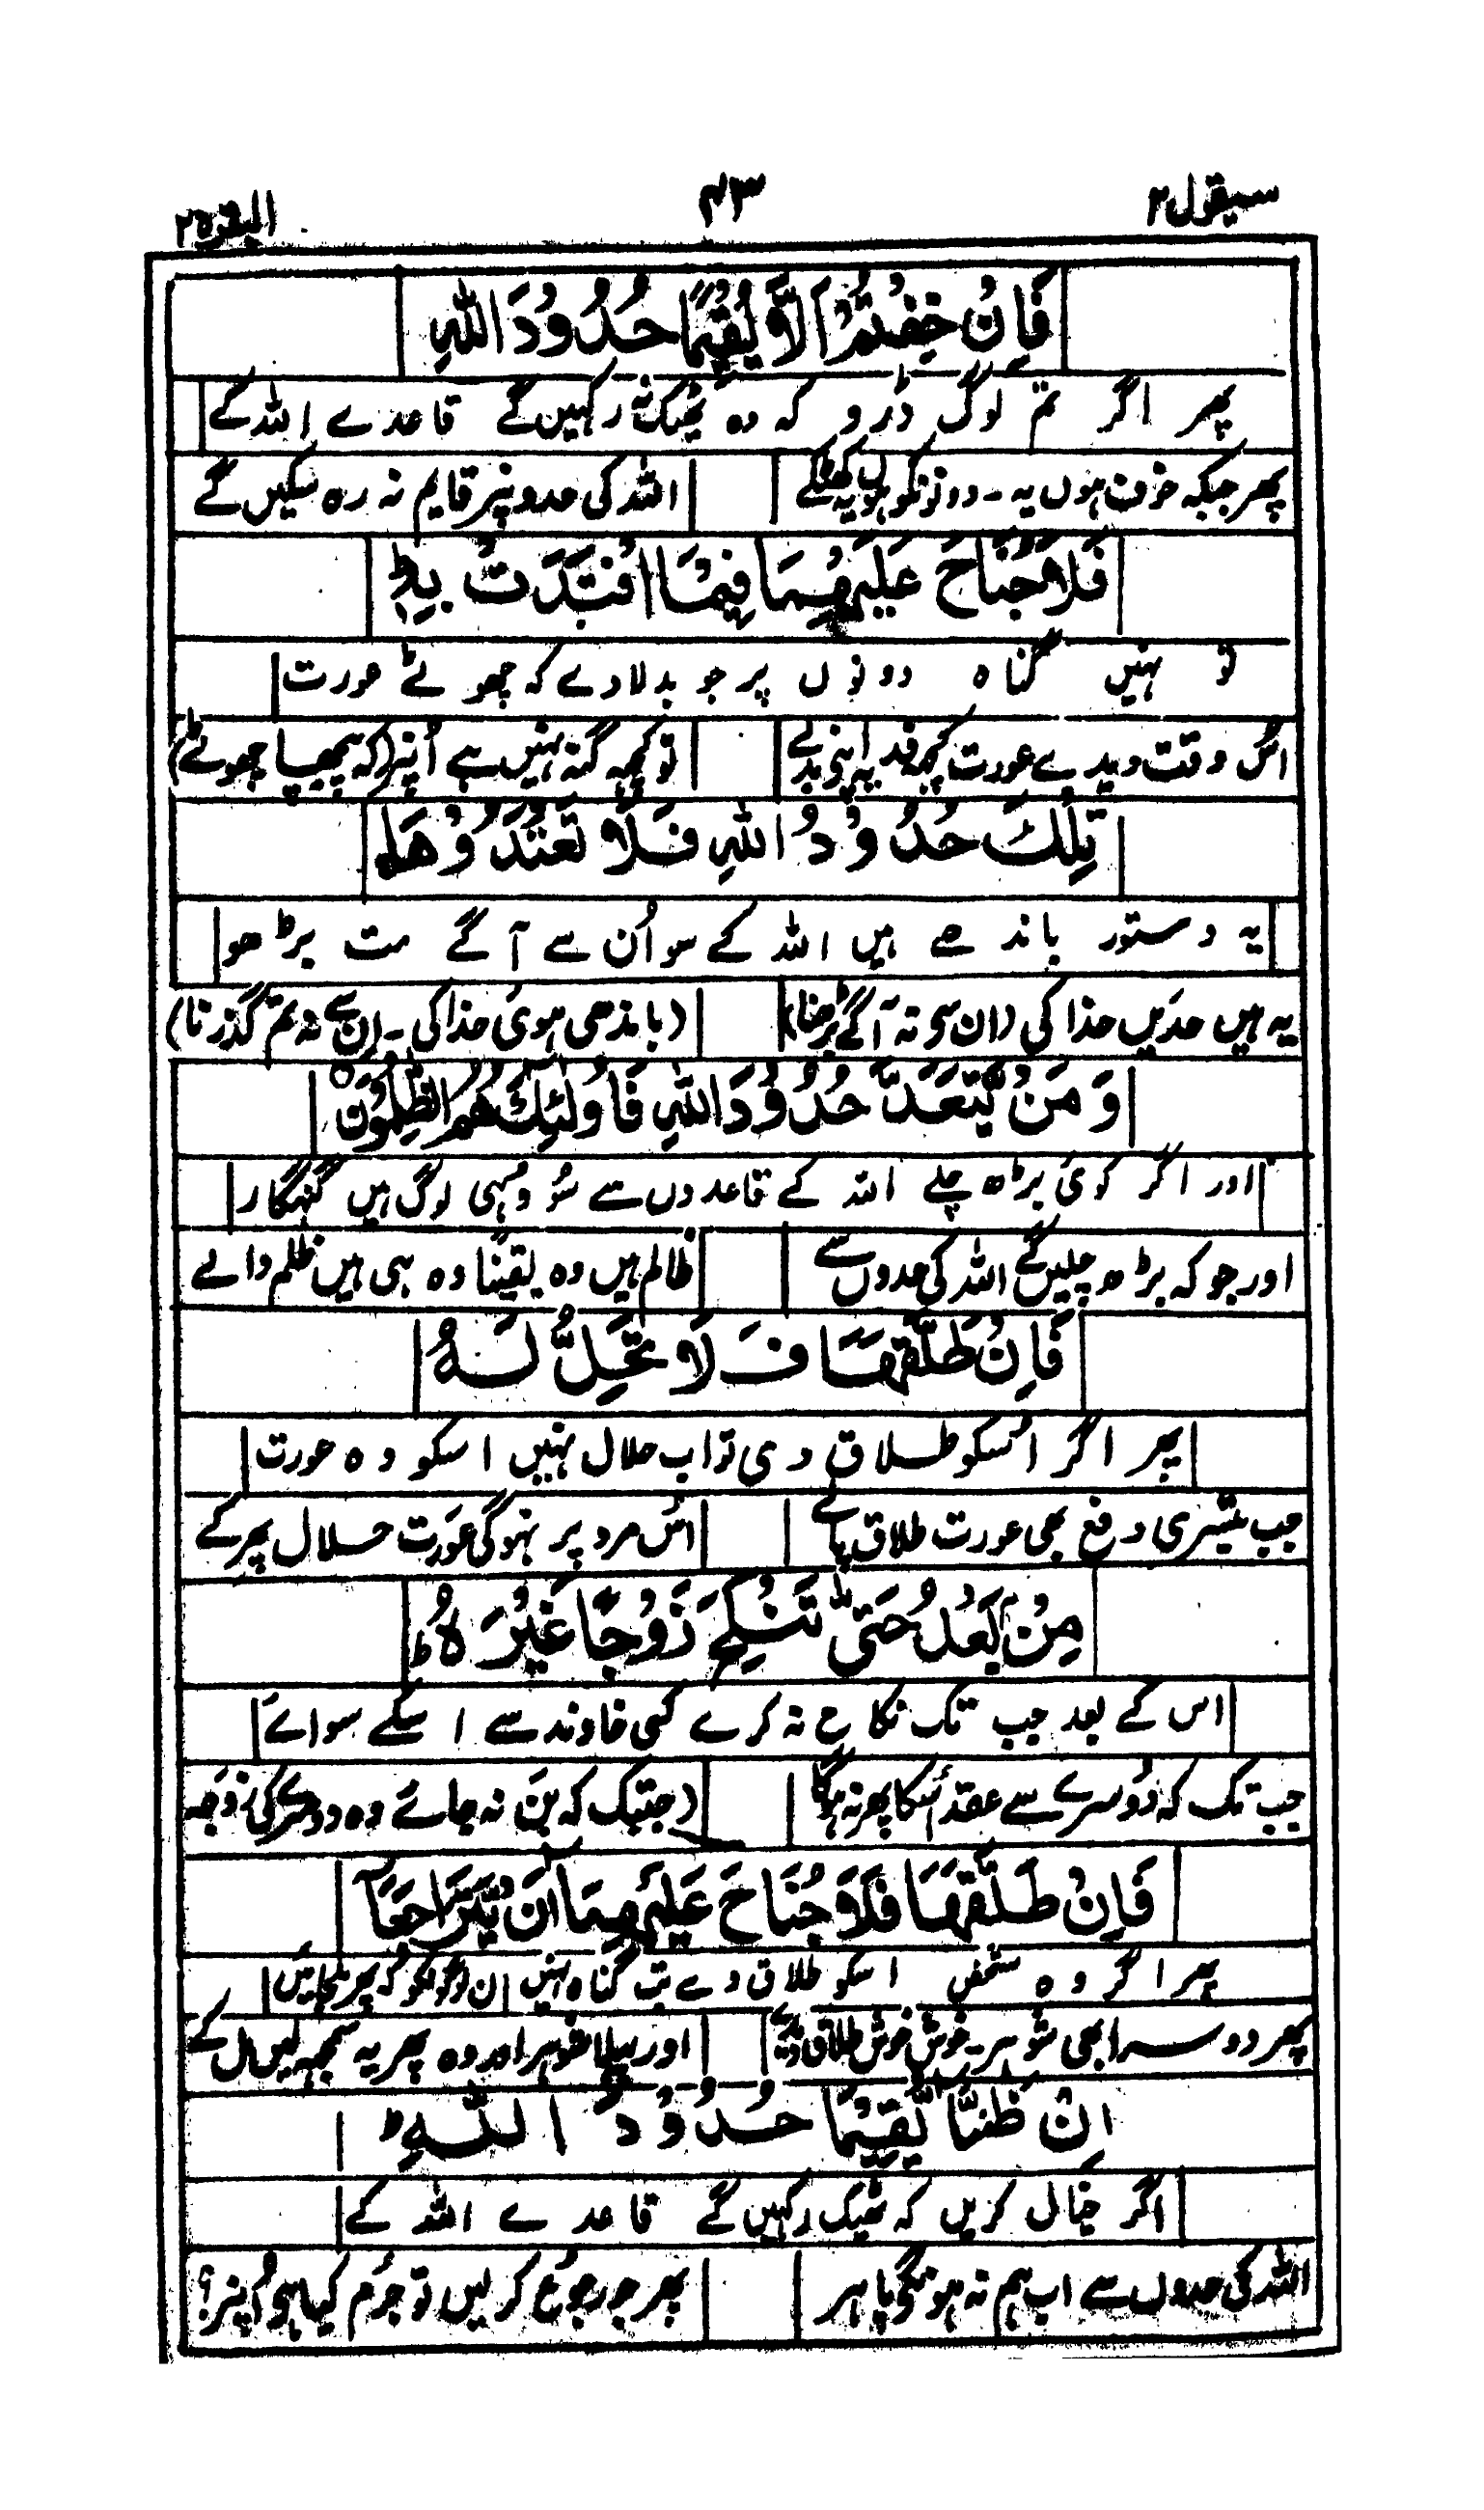 سیقول ۲ ۴۳ البقرہ ۲
فَاِنْ خِفْتُمْ اَلَّا يُقِيْمَا حُدُوْدَ اللّٰهِ
پھر اگر تم لوگ ڈرو کہ وہ ٹھیک نہ رکہیں گے قاعدے اللہ کے
پھر جبکہ خوف ہوں یہ - دونونکو اللہ کی حدونپر قایم نہ رہ سکیں گے
فَلَا جُنَاحَ عَلَيْهِمَا فِيْمَا افْتَدَتْ بِهٖ ط
تو نہیں گناہ دونوں پر جو بدلا دے کہ چھوٹے عورت
اُس وقت دیدے عورت کچھ فدیہ اپنی بدلے تو کچھ گنہ نہیں ہے اُنپر (کہ پیچھا چھوٹے)
تِلْكَ حُدُوْدُ اللّٰهِ فَلَا تَعْتَدُوْهَا
یہ دستور باندھے ہیں اللہ کے سو اُن سے آگے مت بڑھو
یہ ہیں حدیں خدا کی (ان سی نہ آگے بڑھنا) (باندھی ہوئی خدا کی - اِن سے نہ تم گذرنا)
وَ مَنْ يَّتَعَدَّ حُدُوْدَ اللّٰهِ فَاُولٰٓئِكَ هُمُ الظّٰلِمُوْنَ ○
اور اگر کوئی بڑہ چلے اللہ کے قاعدوں سے سُو وُہی لوگ ہیں گنہگار
اور جو کہ بڑہ چلیں گے اللہ کی حدوں سے ظالم ہیں وہ یقینًا وہ ہی ہیں ظلم والے
فَاِنْ طَلَّقَهَا فَلَا تَحِلُّ لَهٗ
پھر اگر اُسکو طلاق دی تو اب حلال نہیں اسکو وہ عورت
جب تیسری دفع بھی عورت طلاق پائے اُس مرد پر نہوگی عورت حلال پھر کے
مِنْۢ بَعْدُ حَتّٰى تَنْكِحَ زَوْجًا غَيْرَهٗ ط
اس کے بعد جب تک نکاح نہ کرے کسی خاوند سے اسکے سوائے
جب تک کہ دُوسرے سے عقد اُسکا پھر نہ ہوگا (جبتک کہ بن نہ جائے وہ دوسرے کی زوجہ
فَاِنْ طَلَّقَهَا فَلَا جُنَاحَ عَلَيْهِمَا اَنْ يَّتَرَاجَعَا
پھر اگر وہ شخص اسکو طلاق دے تب گناہ نہیں ان دونوں کو کہ پھر ملجائیں
پھر دوسرا بھی شوہر - خوش خوش طلاق اور پہلا شوہر اور وہ پھر یہ سمجہہ لیں
اِنْ ظَنَّا اَنْ يُّقِيْمَا حُدُوْدَ اللّٰهِ ط
اگر خیال کریں کہ ٹھیک رکہیں گے قاعدے اللہ کے
اللہ کی حدوں سے اب ہم نہ ہونگی باہر پھر جو رجوع کر لیں تو جُرم کیا ہو اُنپر؟